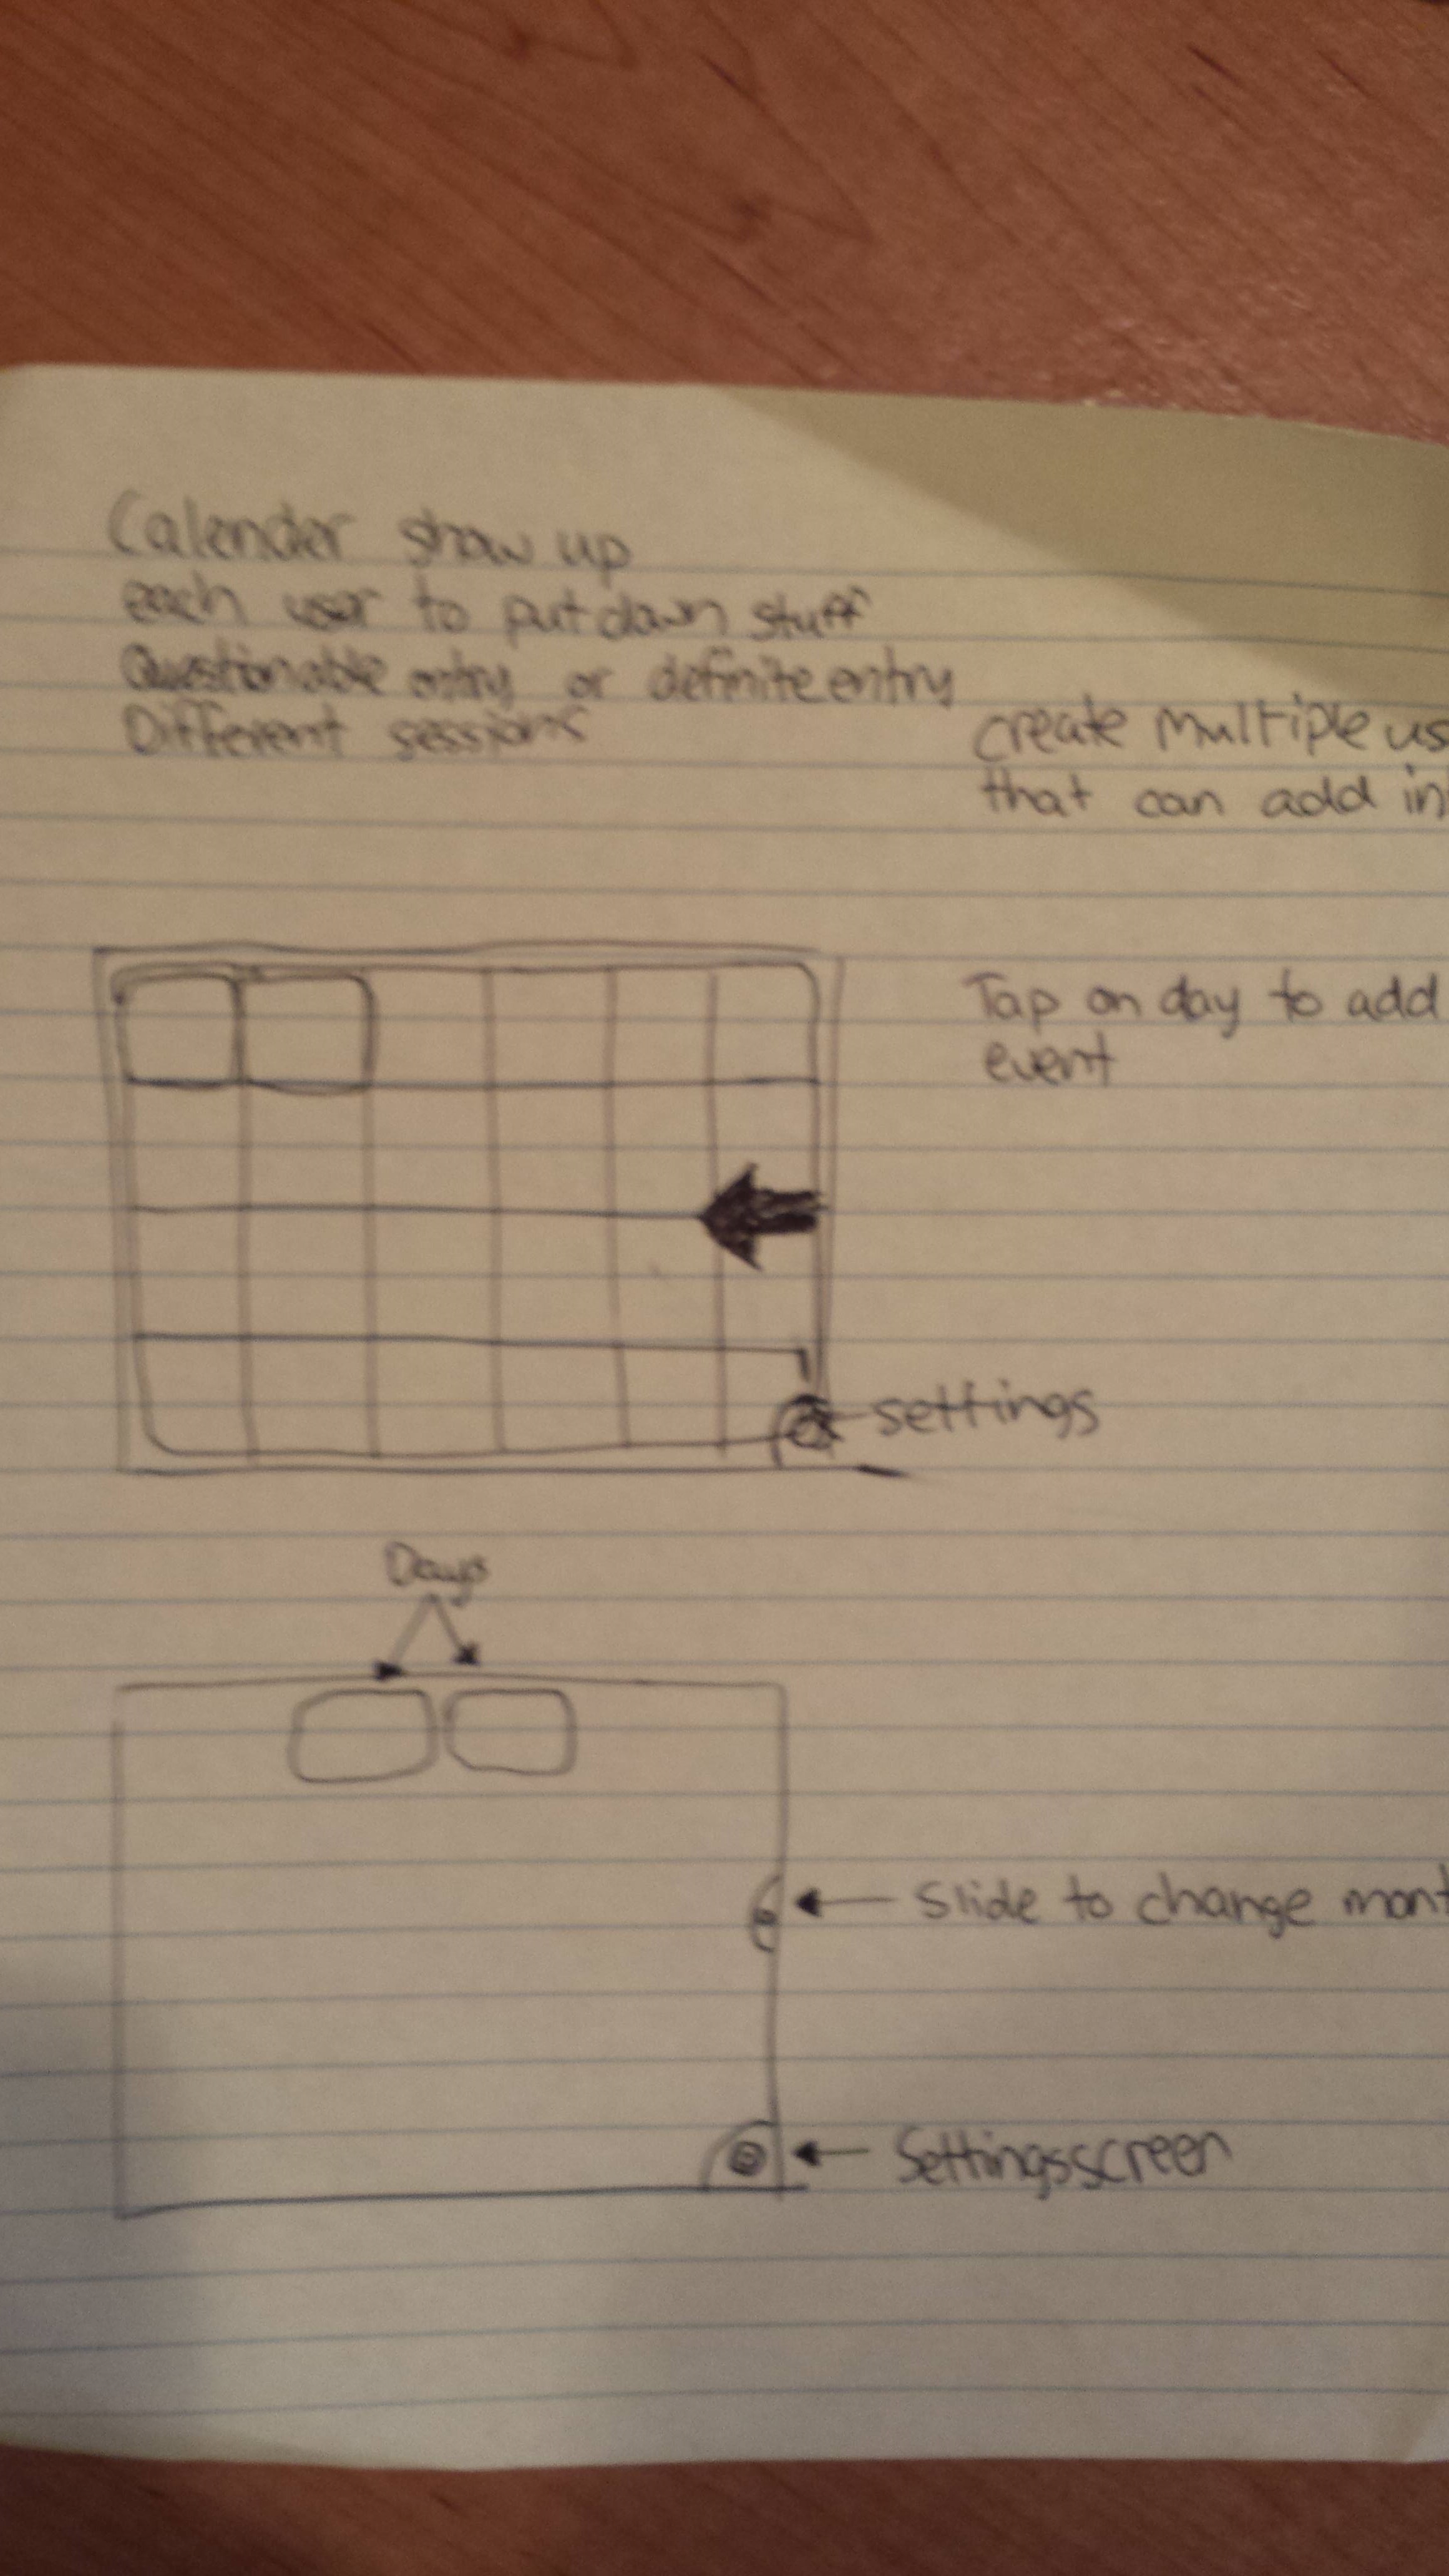 Calender show up
each user to put down stuff
Questionable entry or definite entry
Different sessions
create multiple us
that can add in
Tap on day to add
event
settings
Days
Slide to change mont
Settingsscreen